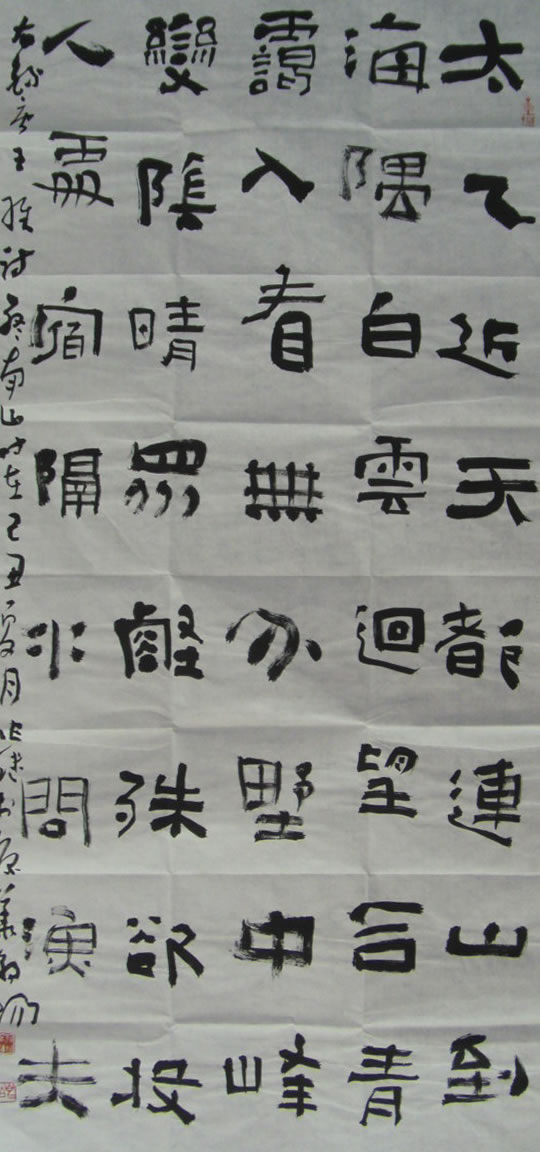 太乙近天都連山到
海隅白雲迴望合青
靄入看無分野中峰
變陰晴眾壑殊欲投
人處宿隔水問漁夫
右錄唐王維詩終南山時在己丑夏月